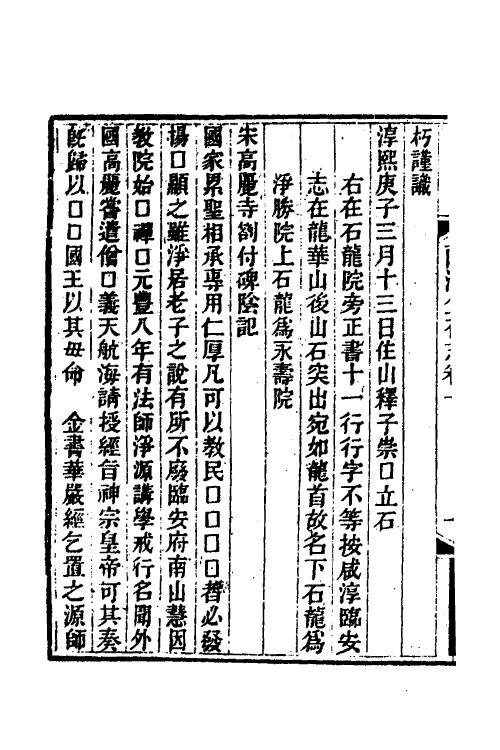 朽謹識
淳熙庚子三月十三日住山釋子崇口立石
右在石龍院旁正書十一行行字不等按咸淳臨安
志在龍華山後山石突出宛如龍首故名下石龍爲
淨勝院上石龍爲永壽院
宋高麗寺劄付碑陰記
國家累聖相承專用仁厚凡可以教民口口口口者必發
揚口顯之雖淨居老子之說有所不廢臨安府南山慧因
教院始口禪口元豐八年有法師淨源講學戒行名聞外
國高麗嘗遣僧口義天航海請授經旨神宗皇帝可其奏
旣歸以口口國王以其母命　金書華嚴經乞置之源師